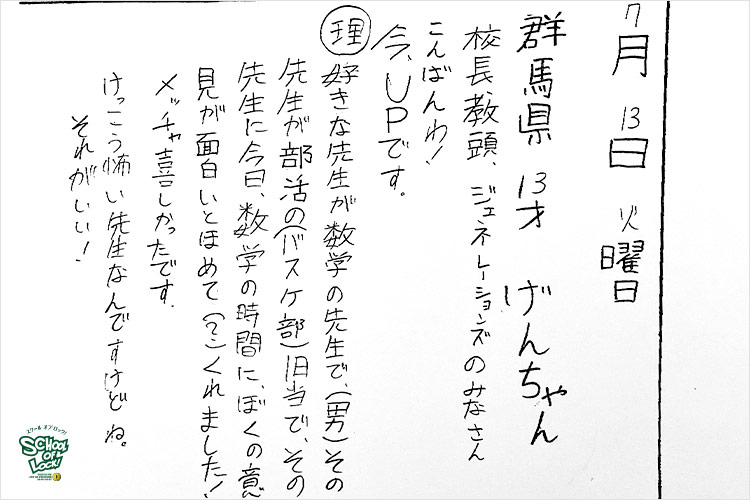 7月13日火曜日
群馬県 13才 げんちゃん
校長、教頭、ジェネレーションズのみなさん
こんばんわ!
今、UPです。
理 好きな先生が数学の先生で、(男)その
先生が部活の(バスケ部)旧当で、その
先生に今日、数学の時間に、ぼくの意
見が面白いとほめて(?)くれました!
メッチャ喜しかったです.
けっこう怖い先生なんですけどね。
それがいい!
スクールオブロック!
SCHOOL OF LOCK!